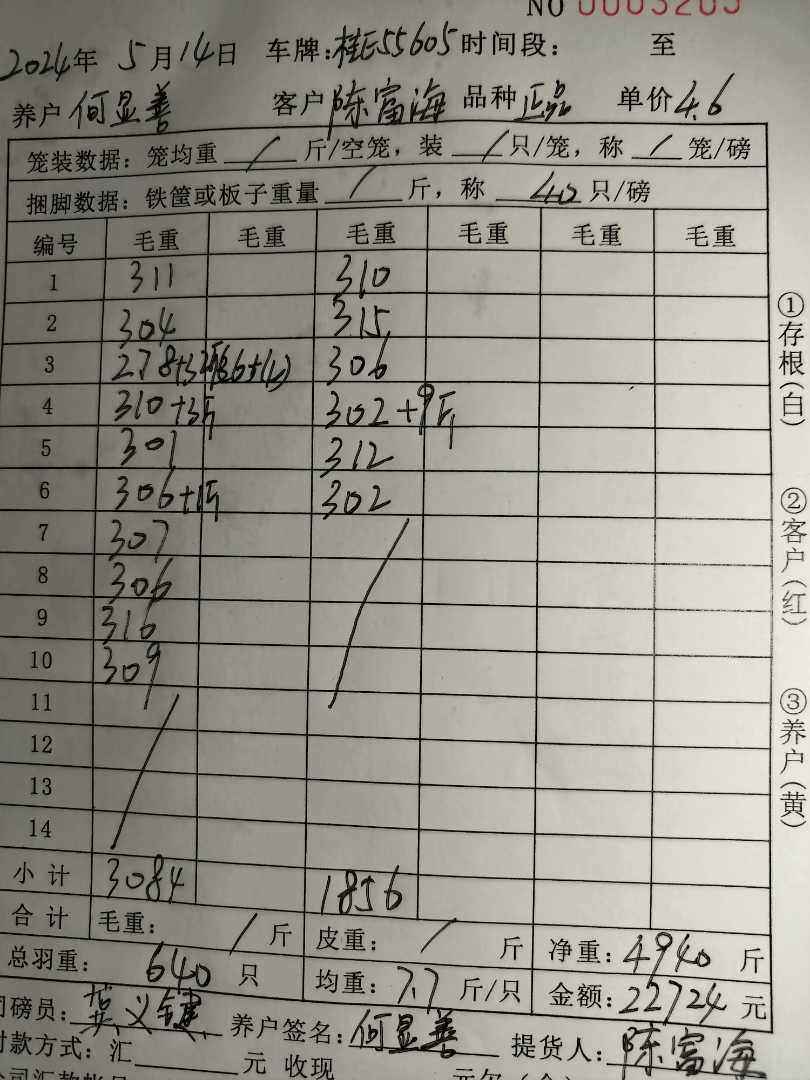 NO 0003205
2024年 5月14日 车牌:桂E55605 时间段: 至
养户 何显善 客户 陈富海 品种 正品 单价 4.6
笼装数据: 笼均重 / 斤/空笼, 装 / 只/笼, 称 / 笼/磅
捆脚数据: 铁筐或板子重量 / 斤, 称 40 只/磅
编号 毛重 毛重 毛重 毛重 毛重 毛重
1 311 310
2 304 315
3 278+3 306
4 310+3斤 302+9斤
5 301 312
6 306+1斤 302
7 307 /
8 306
9 316
10 309
11 /
12
13
14
小计 3084 1856
合计 毛重: / 斤 皮重: / 斤 净重: 4940 斤
总羽重: 640 只 均重: 7.7 斤/只 金额: 22724 元
司磅员: 义健 养户签名: 何显善 提货人: 陈富海
付款方式: 汇 元 收现 元欠
①存根(白)
②客户(红)
③养户(黄)